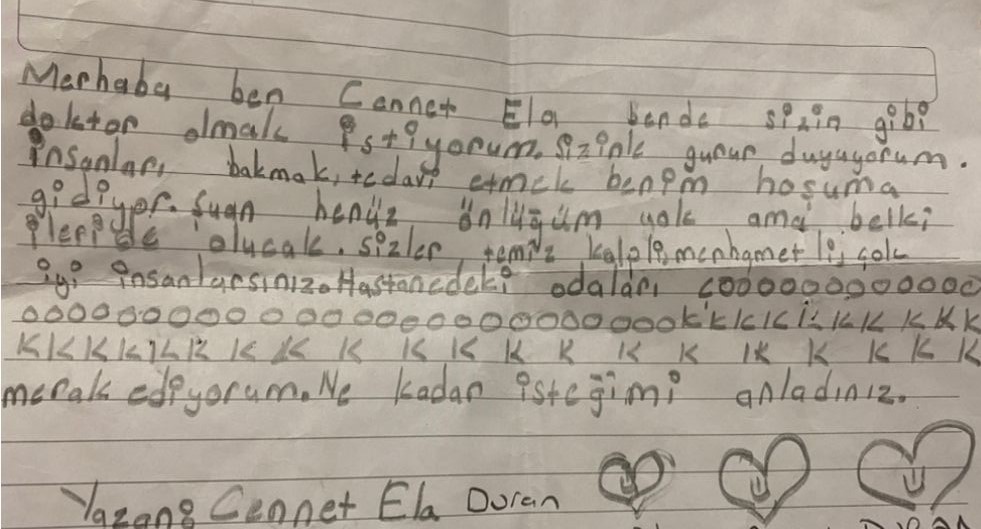 Merhaba ben Cennet Ela bende sizin gibi
doktor olmak istiyorum. Sizinle gurur duyuyorum.
İnsanları bakmak, tedavi etmek benim hoşuma
gidiyor. Şuan henüz önlüğüm yok ama belki
ileride olucak. Sizler, temiz kalpli, merhametli, çok
iyi insanlarsınız. Hastanedeki odaları cooooooooooooo
ooooooooooooooooooooooooookkkkkkkkkk
kkkkkkkkkkkkkkkkkkkk
merak ediyorum. Ne kadar isteğimi anladınız.
Yazan: Cennet Ela Duran